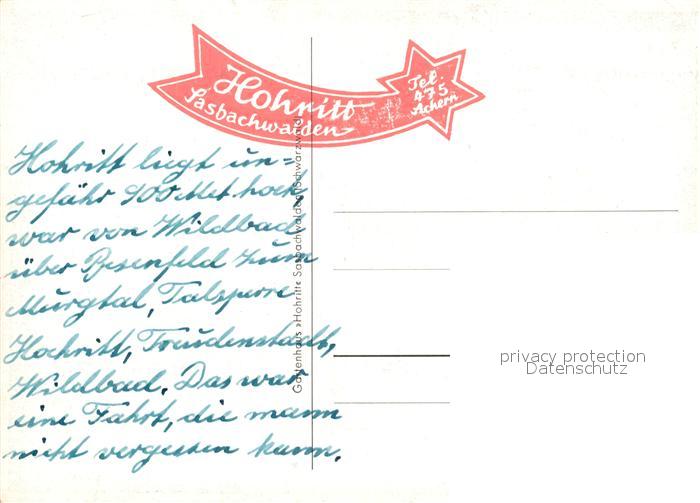 Hohritt
Sasbachwalden
Tel.
475
Achern
Hohritt liegt un=
gefähr 900 Met hoch,
war von Wildbad
über Besenfeld zum
Murgtal, Talsperre
Hochritt, Freudenstadt,
Wildbad. Das war
eine Fahrt, die mann
nicht vergessen kann.
Gästehaus »Hohritt« Sasbachwalden/Schwarzwald
privacy protection
Datenschutz